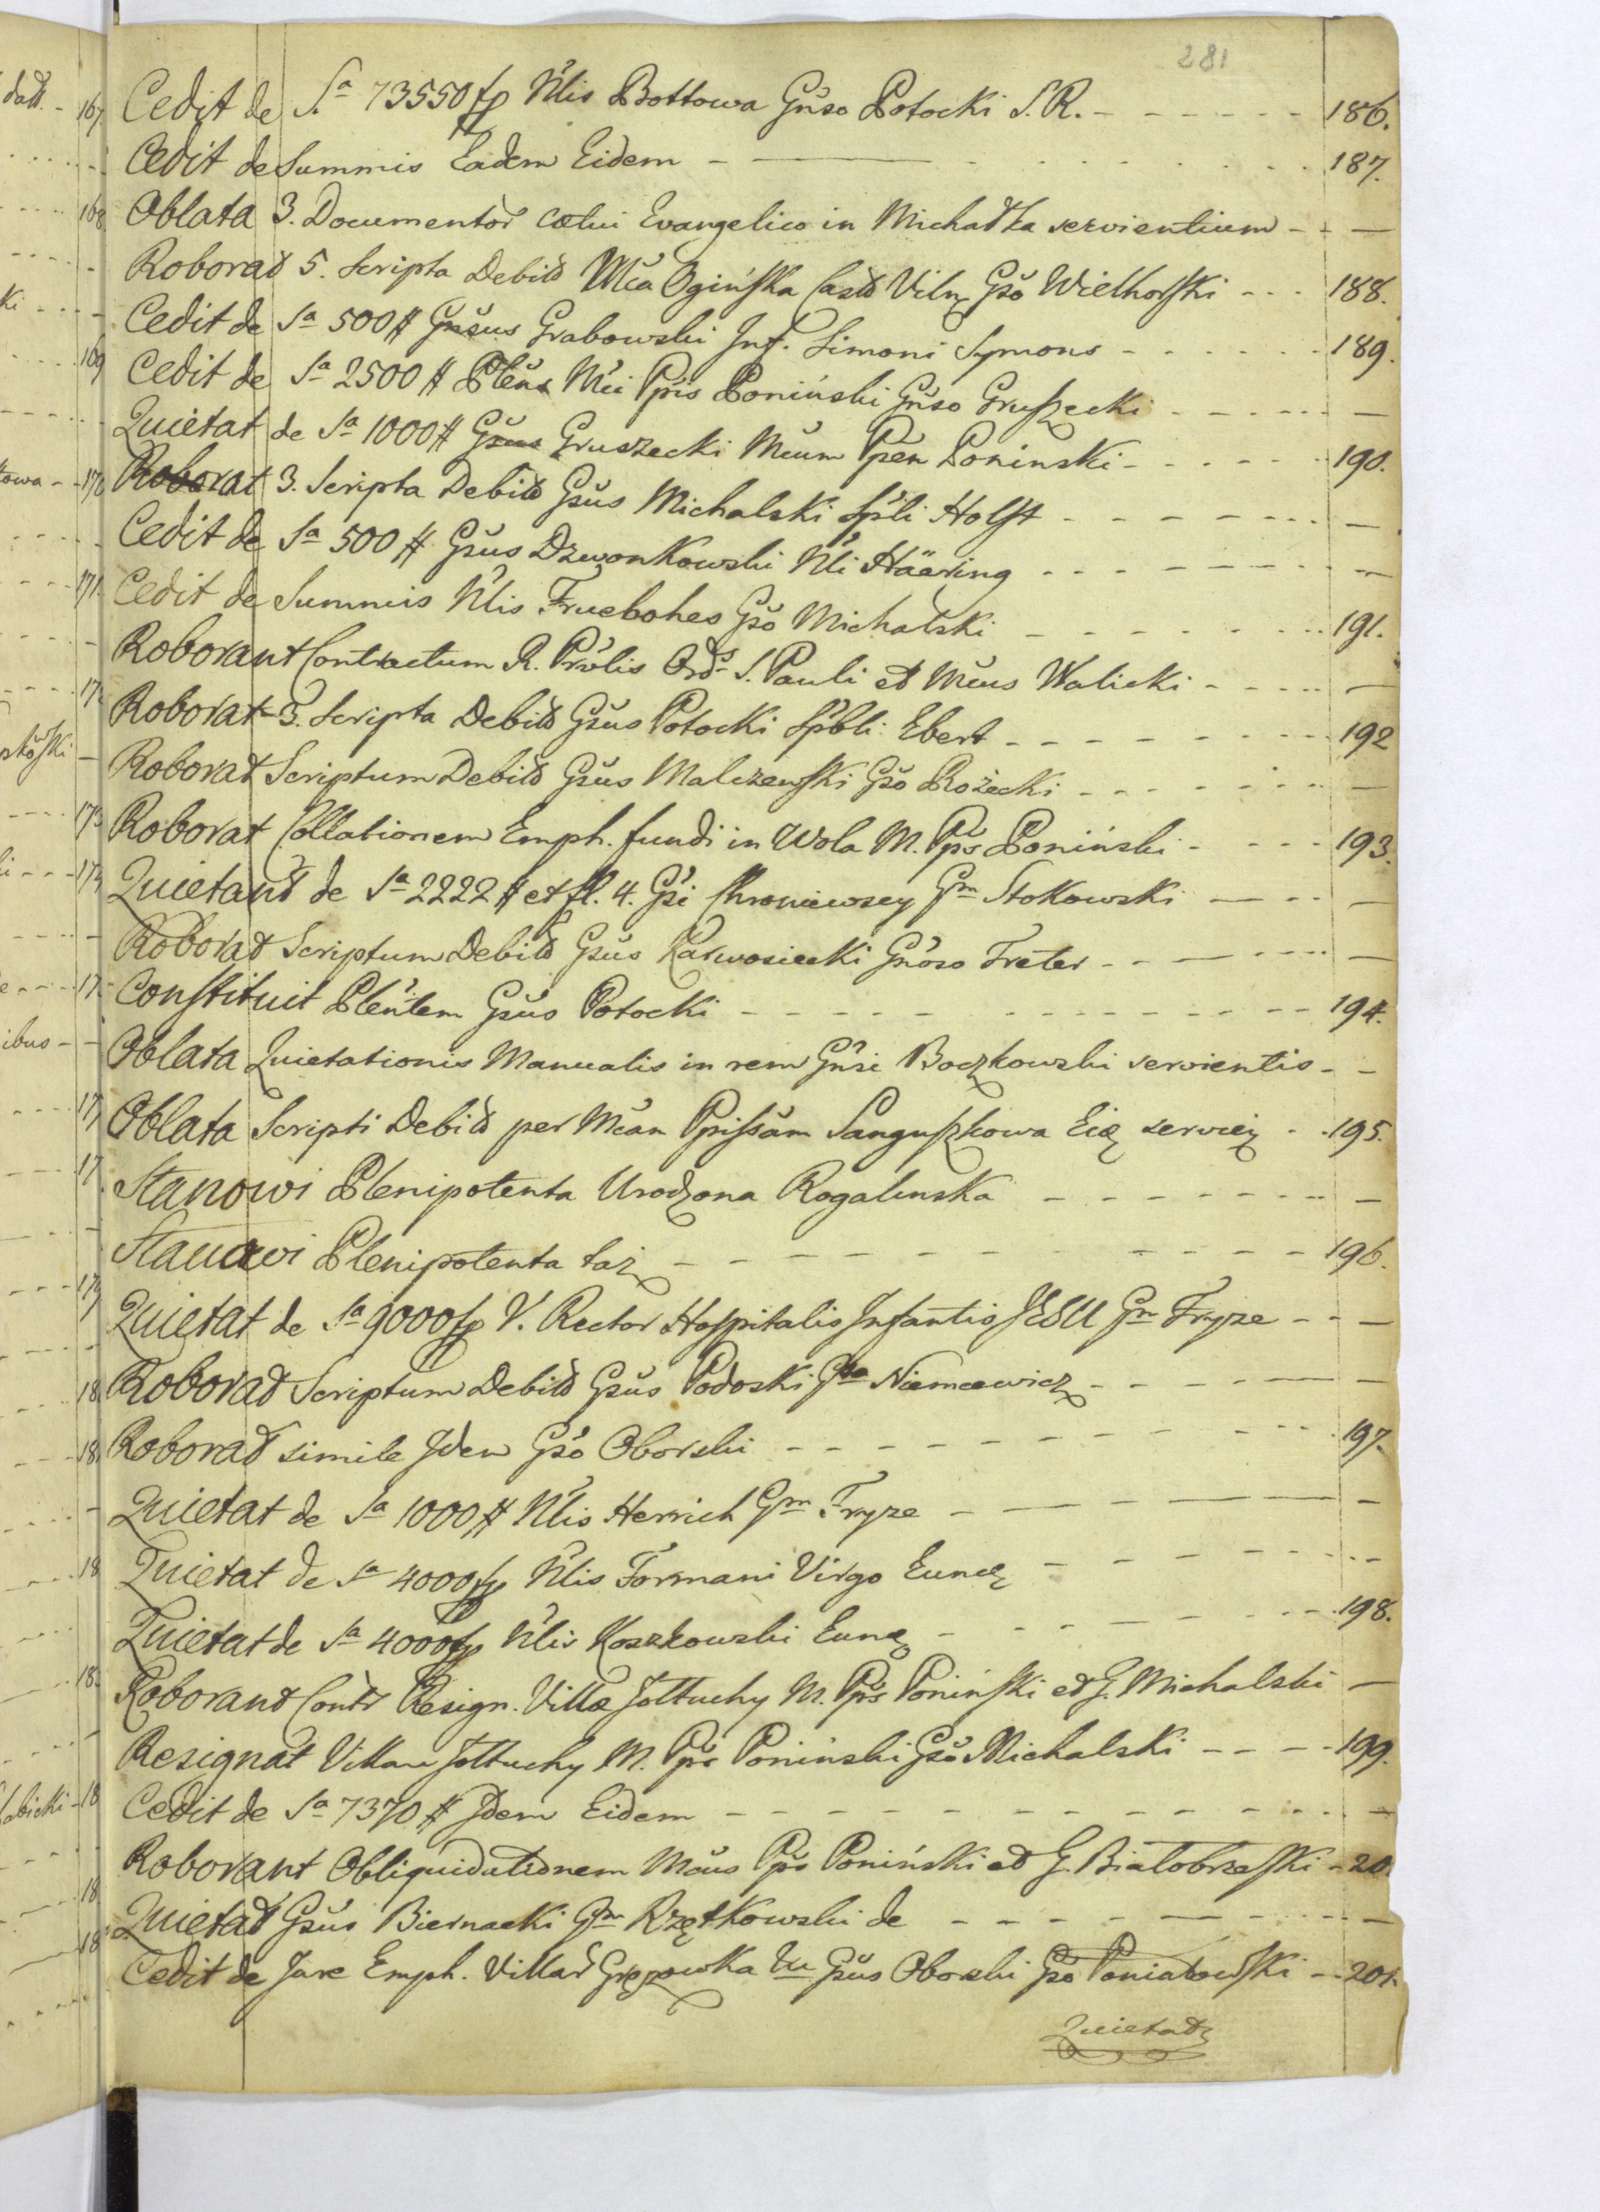 281
Cedit de Sa 73550 fp Nlis Bottowa Gnso Potocki S. R. - - - - - - 186.
Cedit de Summis Eadem Eidem - - - - - - 187.
Oblata 3. Documentor cætui Evangelico in servientium - - -
Roborat 5. Scripta Debiti Mca Ogińska Cast Viln Gso Wielhorski - - - 188.
Cedit de Sa 500 # Gnsus Grabowski Inf. Simoni Symons - - - - - - 189.
Cedit de Sa 2500 # Plens Mci Ppis Poniński Gnso Gruszecki - - - - - -
Quietat de Sa 1000 # Gsus Gruszecki Mcum Ppem Poninski - - - - - 190.
Roborat 3. Scripta Debiti Gsus Michalski Spli Holst - - - - - -
Cedit de Sa 500 # Gsus Dzwonkowski Nli Häaring - - - - - -
Cedit de Summis Nlis Fruebohes Gso Michalski - - - - - - 191.
Roborant Contractum R. Prolis Ords S. Pauli et Mcus Walicki - - - - -
Roborat 3. Scripta Debiti Gsus Potocki Spbli Ebert - - - - - - 192
Roborat Scriptum Debiti Gsus Malczewski Gso Rożecki - - - - - -
Roborat Collationem Emph. fundi in Wola M. Pps Poniński - - - - 193.
Quietant de Sa 2222 # et fl. 4. Gsi Chroniewscy Gm Stokowski - - - -
Roborat Scriptum Debiti Gsus Karwosiecki Gnoso Freter - - - - - -
Constituit Plentem Gsus Potocki - - - - - - 194.
Oblata Quietationis Manualis in rem Gnsi Boczkowski servientis - -
Oblata Scripti Debiti per Mcam Ppissam Sanguszkowa Eid servien - - 195.
Stanowi Plenipotenta Urodzona Rogalinska - - - - - -
Stanowi Plenipotenta taż - - - - - - 196.
Quietat de Sa 9000 fp V. Rector Hospitalis Infantis JESU Gm Fryze - - -
Roborat Scriptum Debiti Gsus Podoski Gso Niemcewicz - - - - - -
Roborat simile Idem Gso Oborski - - - - - - 197.
Quietat de Sa 1000 # Nlis Herrich Gm Fryze - - - - -
Quietat de Sa 4000 fp Nlis Formani Virgo Eund - - - - - -
Quietat de Sa 4000 fp Nlis Koszkowski Eund - - - - - - 198.
Roborant Contr Resign. Villæ Jottuchy M. Pps Poniński et G. Michalski -
Resignat Villam Jottuchy M. Pps Poniński Gso Michalski - - - - 199.
Cedit de Sa 7370 # Idem Eidem - - - - - -
Roborant Obliquidationem Mcus Pps Poniński et G. Białobrzeski - 20
Quietat Gsus Biernacki Gm Rzętkowski de - - - - - -
Cedit de Jure Emph. Villar Gsus Oborski Gso Poniatowski - - 201.
Quietat